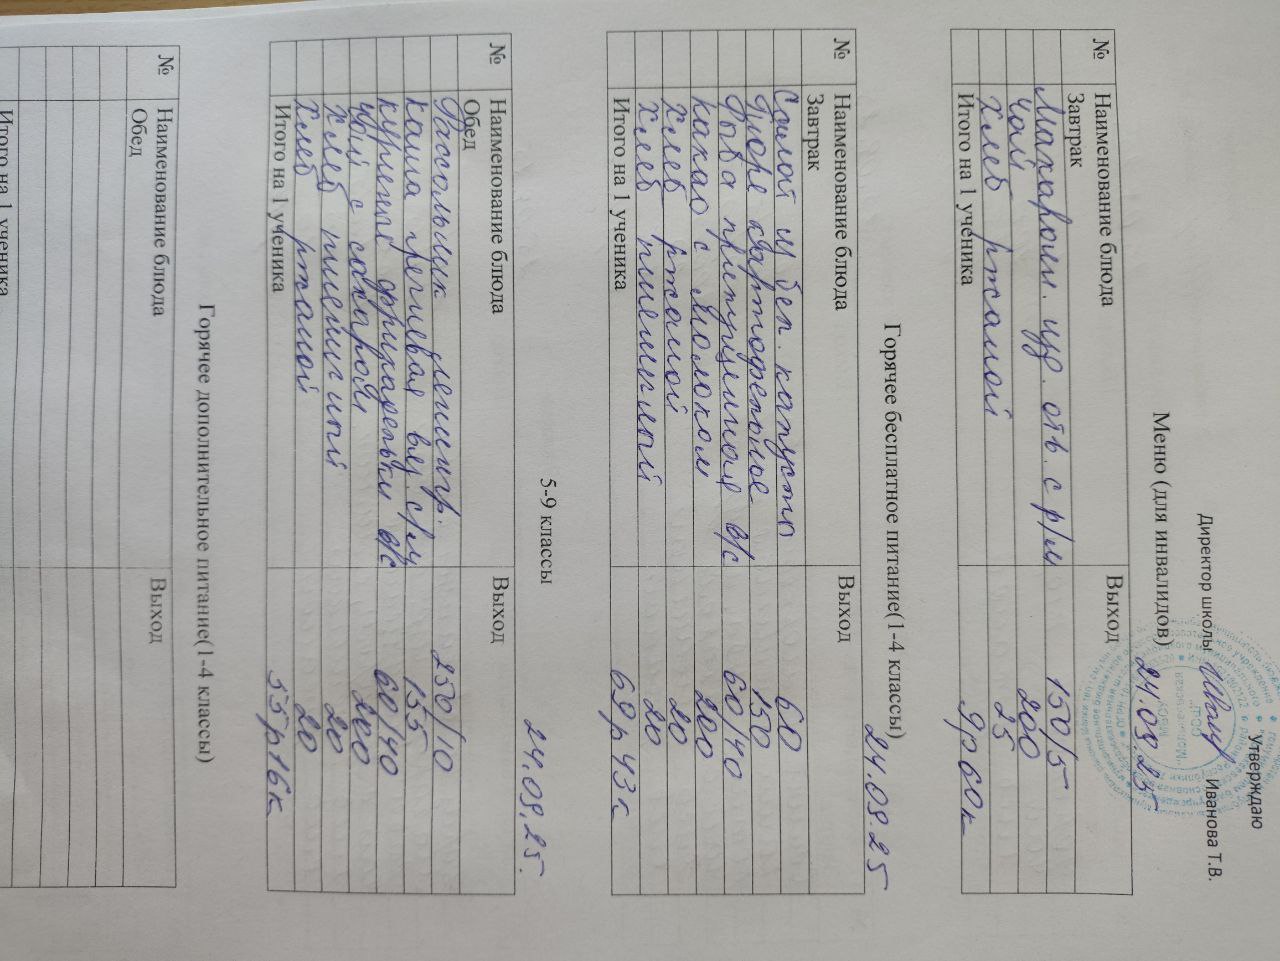 Утверждаю
Директор школы Иванова Т.В.
Меню (для инвалидов) 24.09.25
№ Наименование блюда Выход
Завтрак
Макарон. изд. отв. с р/м 150/5
Чай 200
Хлеб ржаной 25
Итого на 1 ученика 9р 60к
Горячее бесплатное питание(1-4 классы) 24.09.25
№ Наименование блюда Выход
Завтрак
Салат из бел. капусты 60
Пюре картофельное 150
Рыба припущенная в/с 60/40
Какао с молоком 200
Хлеб ржаной 20
Хлеб пшеничный 20
Итого на 1 ученика 69р 43к
5-9 классы 24.09.25.
№ Наименование блюда Выход
Обед
Рассольник ленингр. 250/10
Каша гречневая вяз. с/м 155
Куриные фрикадельки в/с 60/40
Чай с сахаром 200
Хлеб пшеничный 20
Хлеб ржаной 20
Итого на 1 ученика 55р 16к
Горячее дополнительное питание(1-4 классы)
№ Наименование блюда Выход
Обед
Итого на 1 ученика